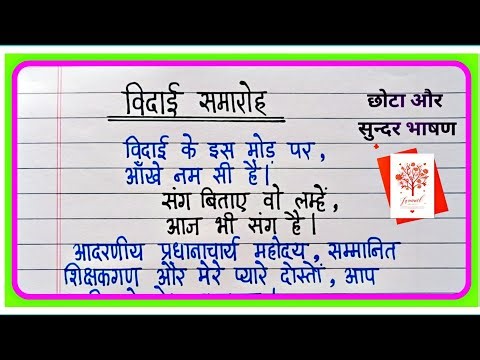 विदाई समारोह
छोटा और
सुन्दर भाषण
विदाई के इस मोड़ पर ,
आँखे नम सी हैं।
संग बिताए वो लम्हें ,
आज भी संग है।
आदरणीय प्रधानाचार्य महोदय , सम्मानित
शिक्षकगण और मेरे प्यारे दोस्तों , आप